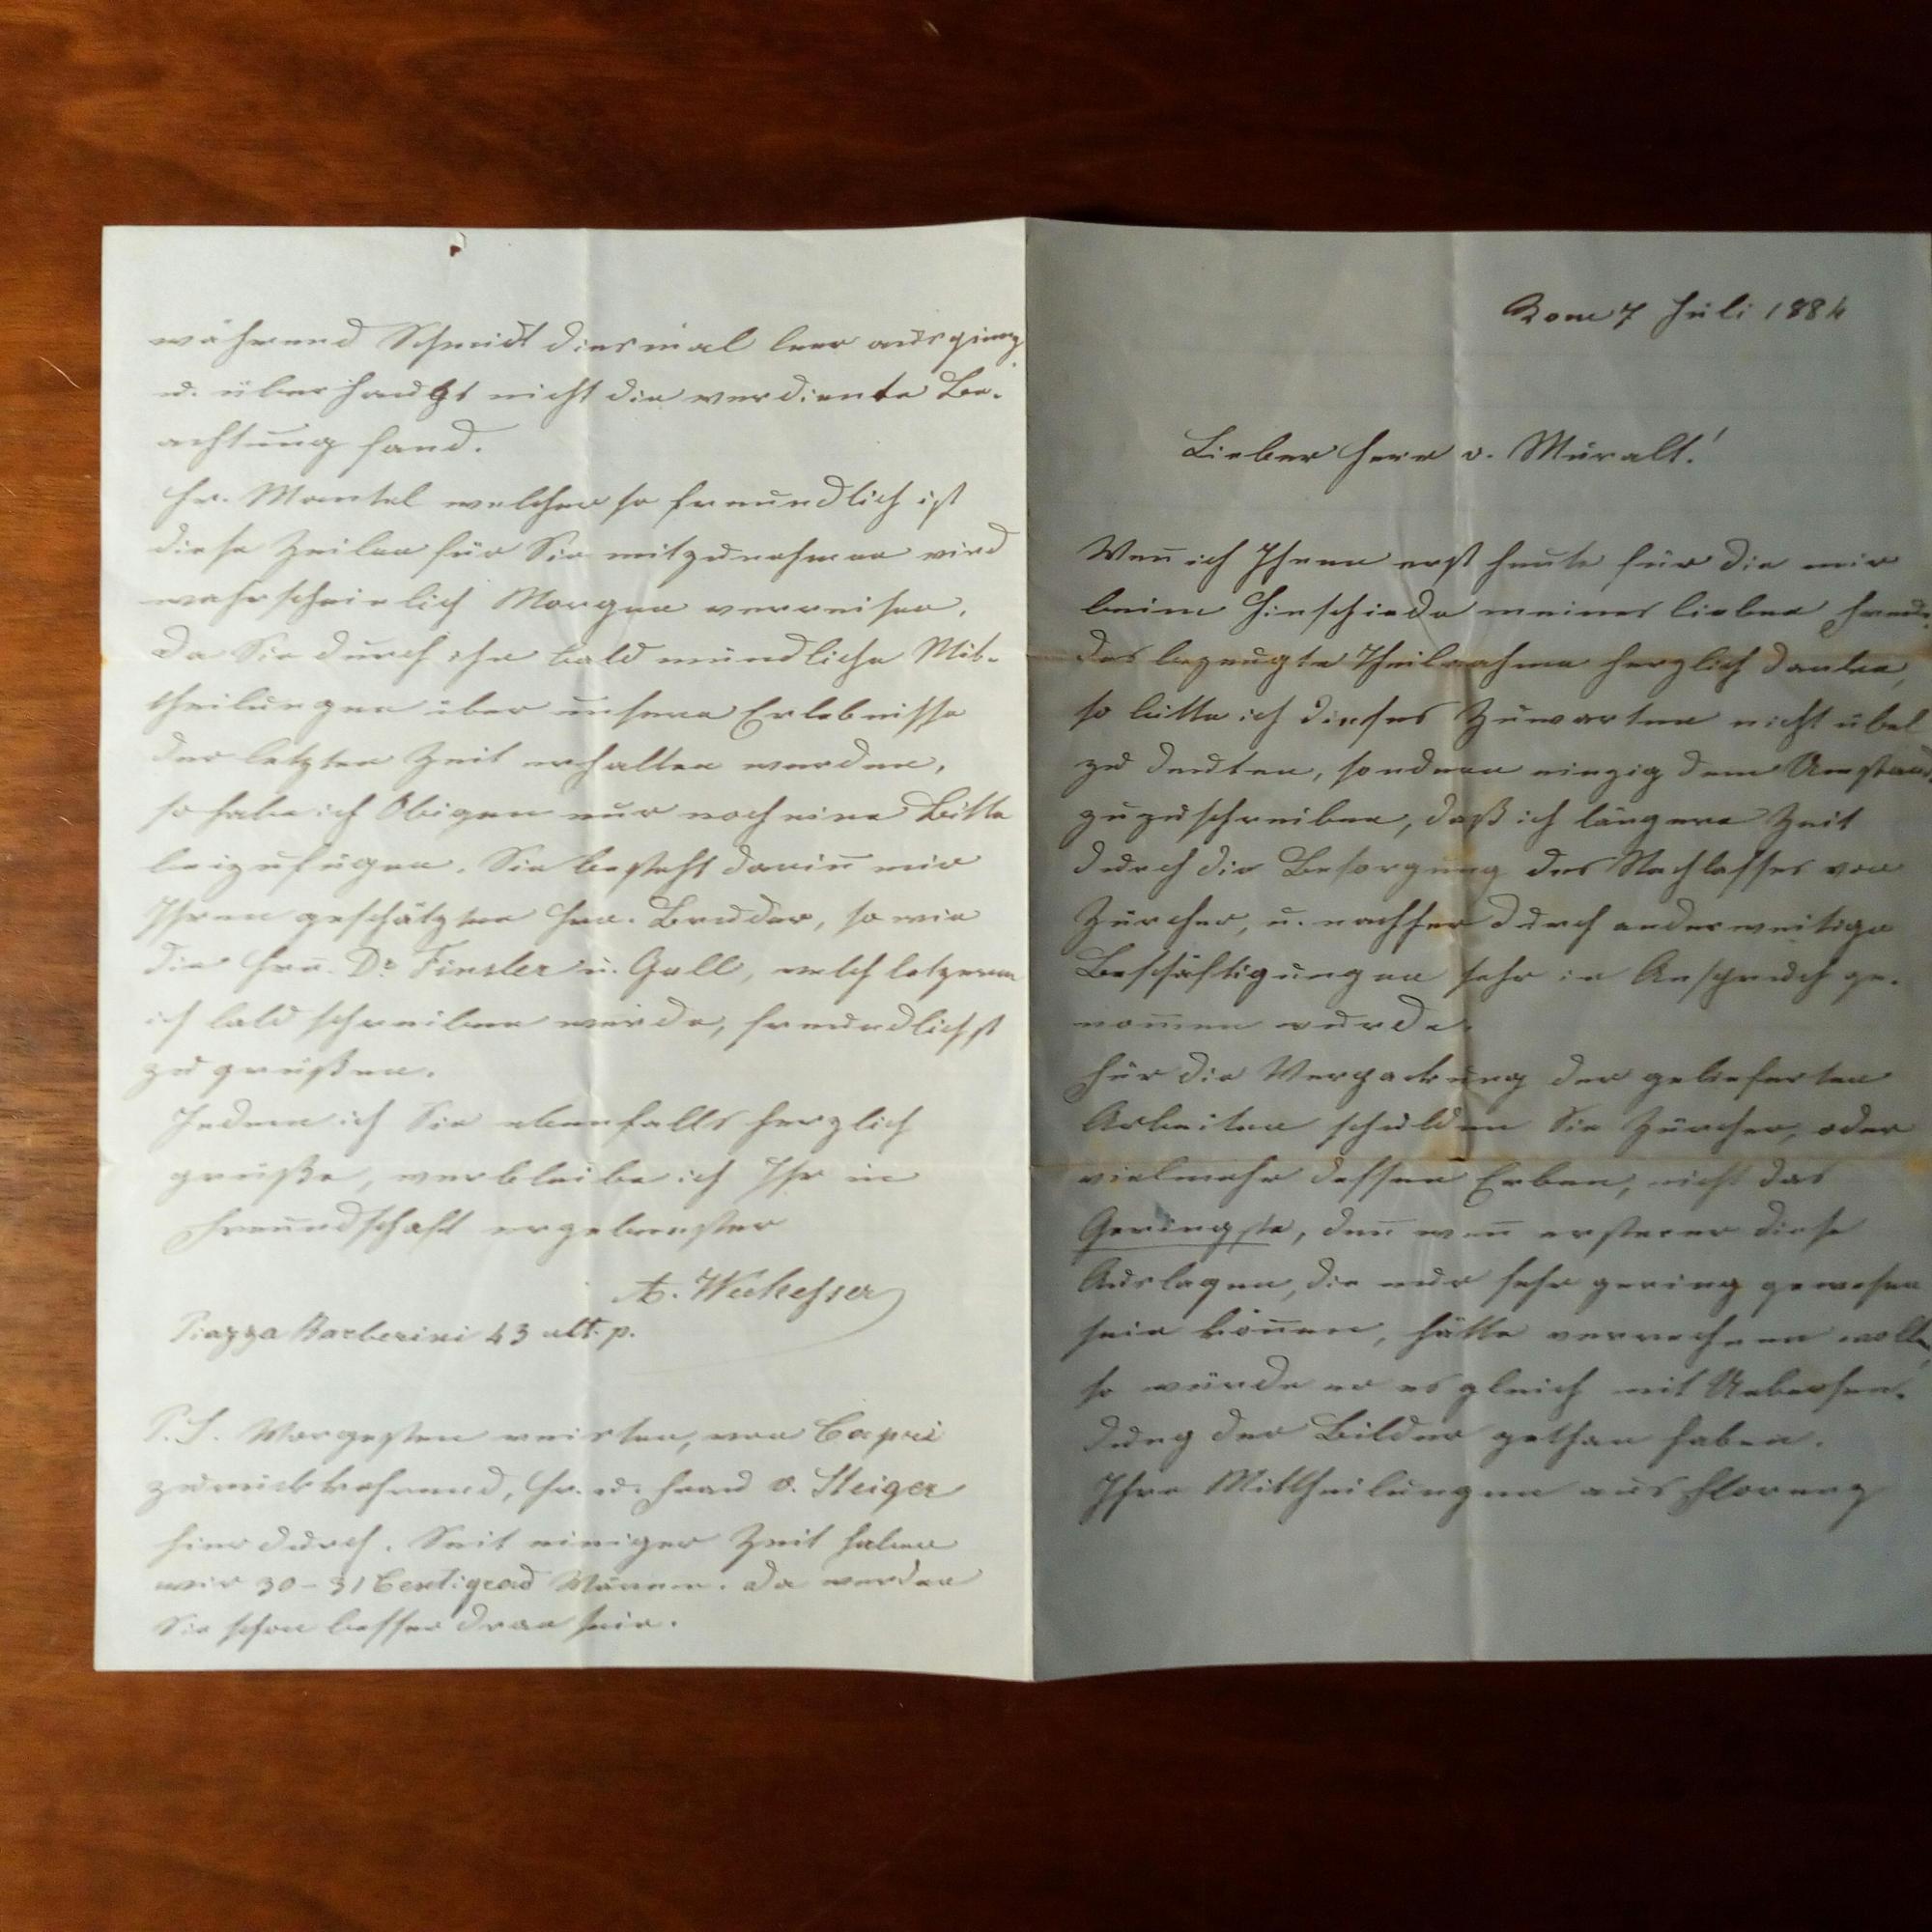 Rom 7 Juli 1884
Lieber Herr v. Muralt!
Wen̄ ich Ihnen erst heute für die mir
beim Hinschiede meines lieben Freun-
des bezeugte Theilnahme herzlich danke,
so bitte ich dieses Zuwarten nicht übel
zu deuten, sondern einzig dem Umstand
zuzuschreiben, daß ich längere Zeit
durch die Besorgung des Nachlasses von
Zürcher, u. nachher durch anderweitige
Beschäftigungen sehr in Anspruch ge-
nom̄en wurde.
Für die Verpackung der gelieferten
Arbeiten schulden Sie Zürcher, oder
vielmehr dessen Erben, nicht das
Geringste, den̄ wen̄ ersterer diese
Auslagen, die nur sehr gering gewesen
sein kön̄en, hätte verrechnen wollen,
so würde er es gleich mit Uebersen-
dung der Bilder gethan haben.
Ihre Mittheilungen aus Florenz
während Schmidt diesmal leer ausgieng
u. überhaupt nicht die verdiente Be-
achtung fand.
Hr. Mantel welcher so freundlich ist
diese Zeilen für Sie mitzunehmen wird
wahrscheinlich Morgen verreisen.
Da Sie durch ihn bald mündliche Mit-
theilungen über unsere Erlebnisse
der letzten Zeit erhalten werden,
so habe ich Obigem nur noch eine Bitte
beizufügen. Sie besteht darin̄ mir
Ihren geschätzten Hrn. Bruder, so wie
die Hrn. Dr Finsler u. Gull, welch letzerem
ich bald schreiben werde, freundlichst
zu grüßen.
Indem ich Sie ebenfalls herzlich
grüße, verbleibe ich Ihr in
Freundschaft ergebenster
A. Weckesser
Piazza Barberini 43 ult. p.
P.S. Vorgestern reisten, von Capri
zurückkehrend, Hr. u. Frau v. Steiger
hier durch. Seit einiger Zeit haben
wir 30–31 Centigrad Wärme. Da werden
Sie schon besser dran sein.